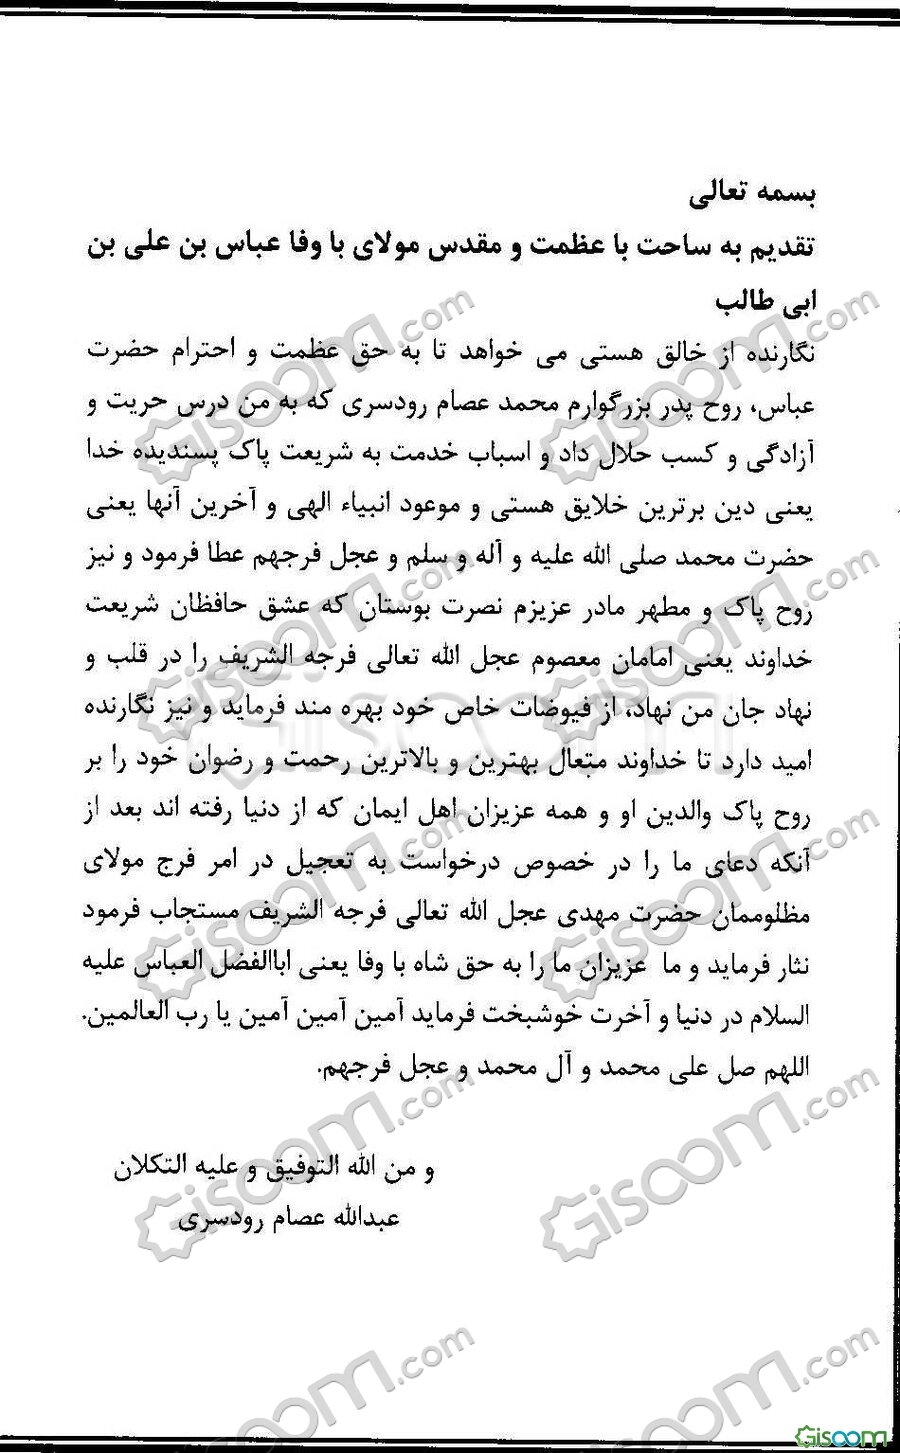 بسمه تعالی
تقدیم به ساحت با عظمت و مقدس مولای با وفا عباس بن علی بن
ابی طالب
نگارنده از خالق هستی می خواهد تا به حق عظمت و احترام حضرت
عباس، روح پدر بزرگوارم محمد عصام رودسری که به من درس حریت و
آزادگی و کسب حلال داد و اسباب خدمت به شریعت پاک پسندیده خدا
یعنی دین برترین خلایق هستی و موعود انبیاء الهی و آخرین آنها یعنی
حضرت محمد صلی الله علیه و آله و سلم و عجل فرجهم عطا فرمود و نیز
روح پاک و مطهر مادر عزیزم نصرت بوستان که عشق حافظان شریعت
خداوند یعنی امامان معصوم عجل الله تعالی فرجه الشریف را در قلب و
نهاد جان من نهاد، از فیوضات خاص خود بهره مند فرماید و نیز نگارنده
امید دارد تا خداوند متعال بهترین و بالاترین رحمت و رضوان خود را بر
روح پاک والدین او و همه عزیزان اهل ایمان که از دنیا رفته اند بعد از
آنکه دعای ما را در خصوص درخواست به تعجیل در امر فرج مولای
مظلوممان حضرت مهدی عجل الله تعالی فرجه الشریف مستجاب فرمود
نثار فرماید و ما عزیزان ما را به حق شاه با وفا یعنی اباالفضل العباس علیه
السلام در دنیا و آخرت خوشبخت فرماید آمین آمین آمین یا رب العالمین.
اللهم صل علی محمد و آل محمد و عجل فرجهم.
و من الله التوفیق و علیه التکلان
عبدالله عصام رودسری
Gisoom.com
Gisoom.com
Gisoom.com
Gisoom.com
Gisoom
Gisoom.com
Gisoom.com
Gisoom.com
Gisoom.com
Gisoom.com
Gisoom.com
Gisoom